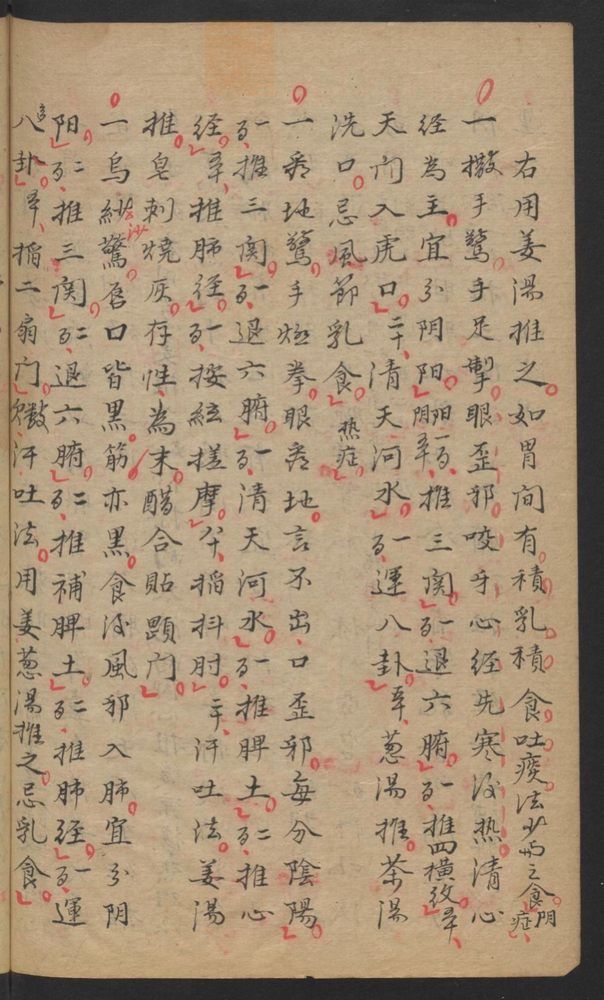 右用姜湯推之如胃间有積乳積食吐痰法少与之食阴症
一撒手驚手足掣眼歪邪咬牙心經先寒後热清心
经為主宜分阴阳阳一百阴五十推三関一百退六腑一百推四横纹五十
天门入虎口二十清天河水一百運八卦五十葱湯推茶湯
洗口忌風節乳食 热症
一着地驚手捻拳眼着地言不出口歪邪每分陰陽
一百推三関一百退六腑一百清天河水一百推脾土二百推心
经五十推肺经一百按絃搓摩八十掐抖肘二十汗吐法姜湯
推皂刺燒灰存性為末醋合貼顖门
一烏紗驚唇口皆黑筋亦黑食後風邪入肺宜分阴
阳二百推三関二百退六腑二百推補脾土二百推肺经一百運
八卦五十掐二扇门汗吐法用姜葱湯推之忌乳食